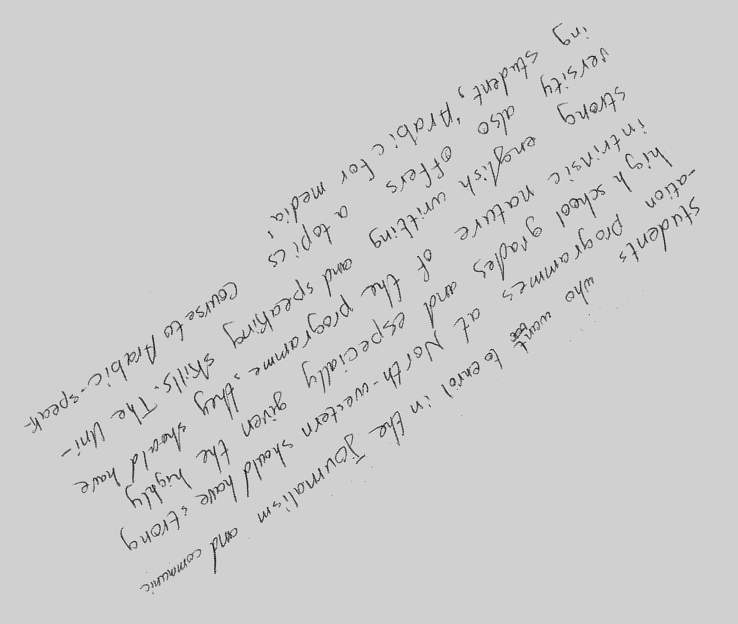 Students who want to enrol in the Journalism and communic
-ation programmes at North-western should have strong
high school grades and especially given the highly
intrinsic nature of the programme, they should have
strong english writting and speaking skills. The Uni-
versity also offers a topics course to Arabic-speak-
ing student, "Arabic for media.